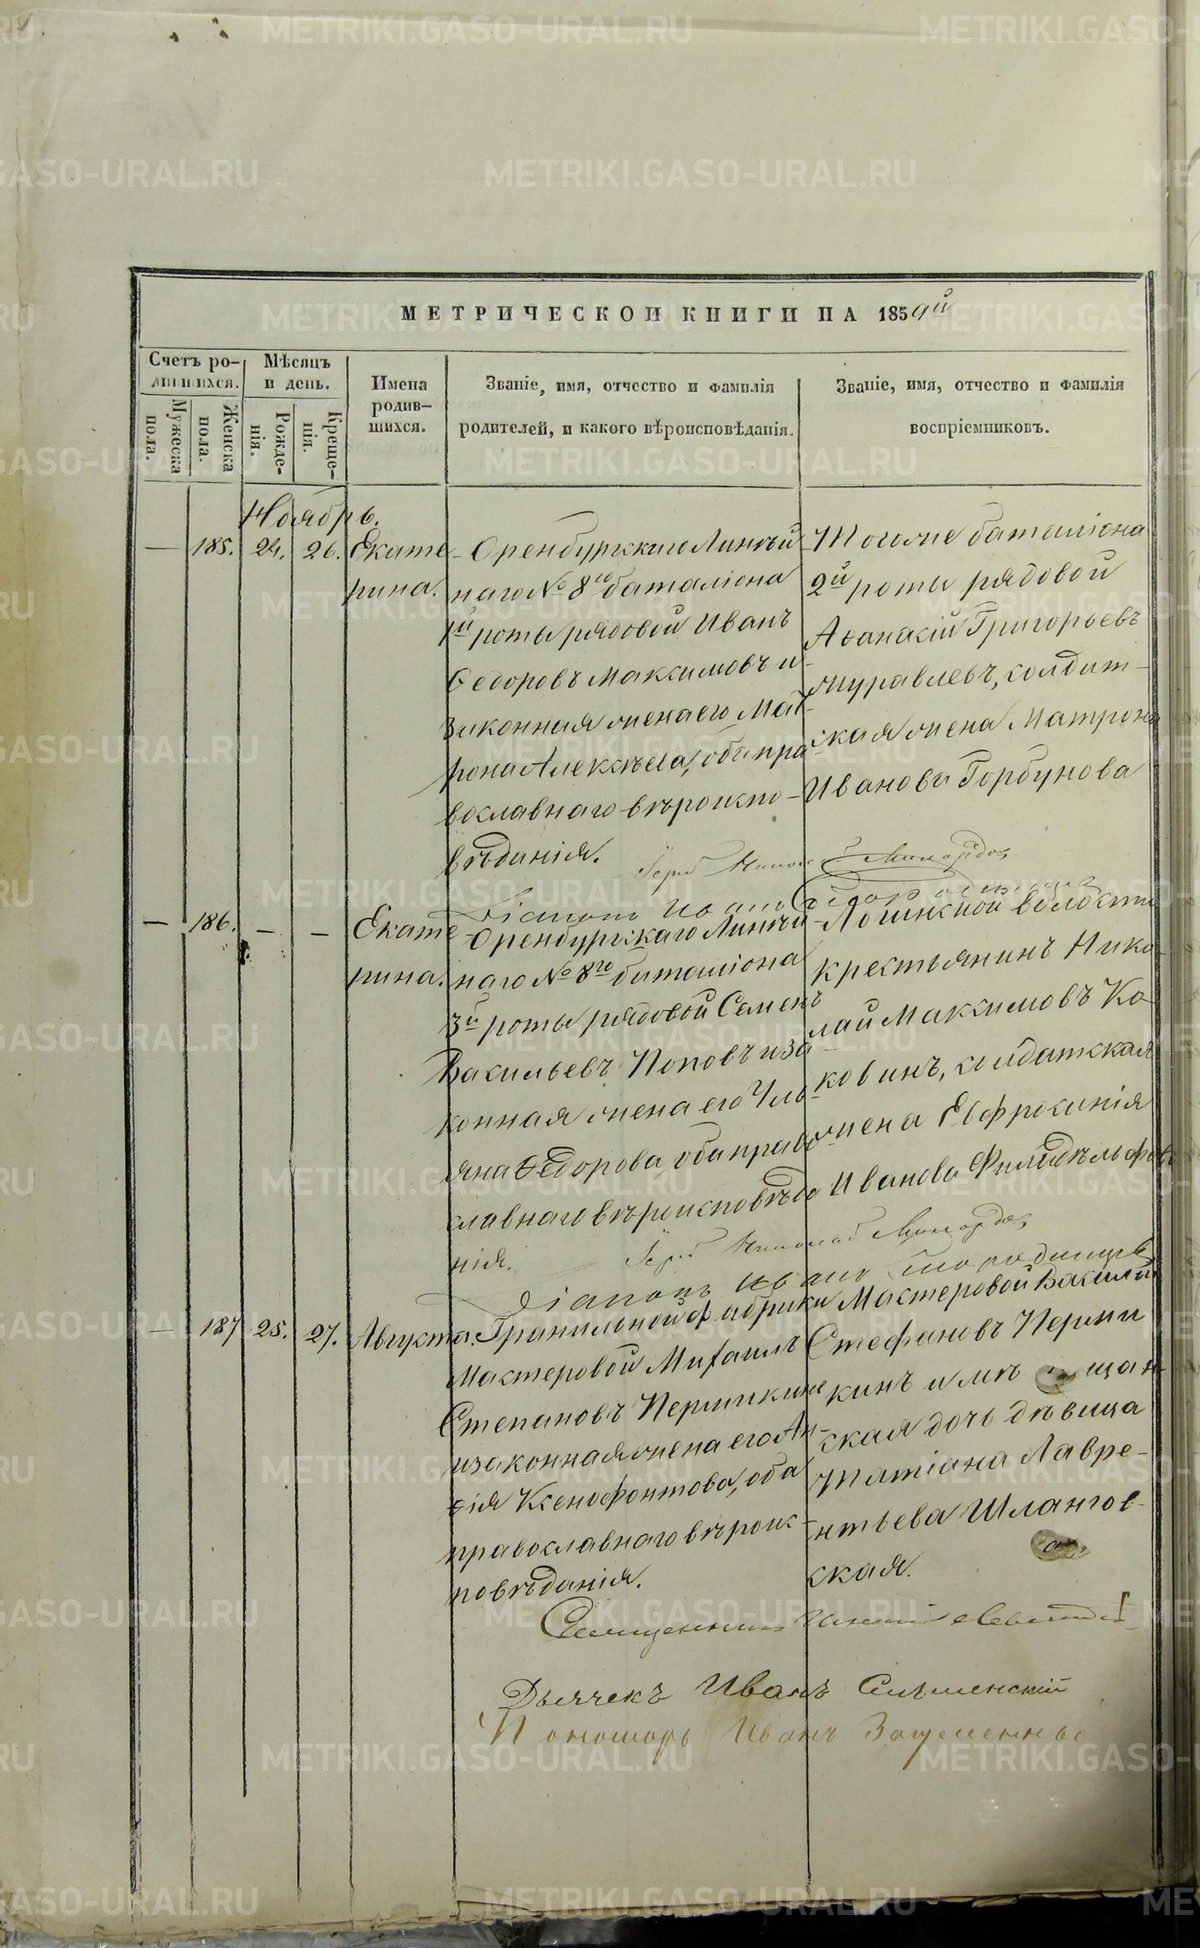 МЕТРИЧЕСКОЙ КНИГИ НА 1859й
Счетъ ро-
дившихся.
Мѣсяцъ
и день.
Имена
родив-
шихся.
Званіе, имя, отчество и фамилія
родителей, и какого вѣроисповѣданія.
Званіе, имя, отчество и фамилія
воспріемниковъ.
Мужеска
пола.
Женска
пола.
Рожде-
нія.
Креще-
нія.
Ноябрь.
— 185. 24. 26. Екате
рина.
Оренбургскаго Линѣй
наго № 8го баталіона
1й роты рядовой Иванъ
Ѳедоровъ Максимовъ и
законная жена его Мат
рона Алексѣева, оба пра
вославнаго вѣроиспо-
вѣданія.
Тогоже баталіона
2й роты рядовой
Аѳанасій Григорьевъ
Журавлевъ, солдат-
ская жена Матрона
Иванова Горбунова
Іерей Николай
Діаконъ Иванъ
— 186. — — Екате
рина.
Оренбургскаго Линѣй
наго № 8го баталіона
3й роты рядовой Семенъ
Васильевъ Поповъ и за
конная жена его Улья
яна Ѳедорова, оба право
славнаго вѣроисповѣда
нія.
волости
крестьянинъ Нико-
лай Максимовъ Ко-
ковинъ, солдатская
жена Евфросинія
Иванова Филадельфова
Іерей Николай
Діаконъ Иванъ
— 187 25. 27. Августа.
Гранильной фабрики
Мастеровой Михаилъ
Степановъ Пермикинъ
и законная жена его Ан-
сія Ксенофонтова, оба
православнаго вѣроис-
повѣданія.
Мастеровой Василій
Стефановъ Перми
кинъ и мѣщан-
ская дочь дѣвица
Татіана Лавре-
нтьева Шлангов-
ская.
Священникъ
Дьячекъ Иванъ
Пономарь Иванъ
METRIKI.GASO-URAL.RU